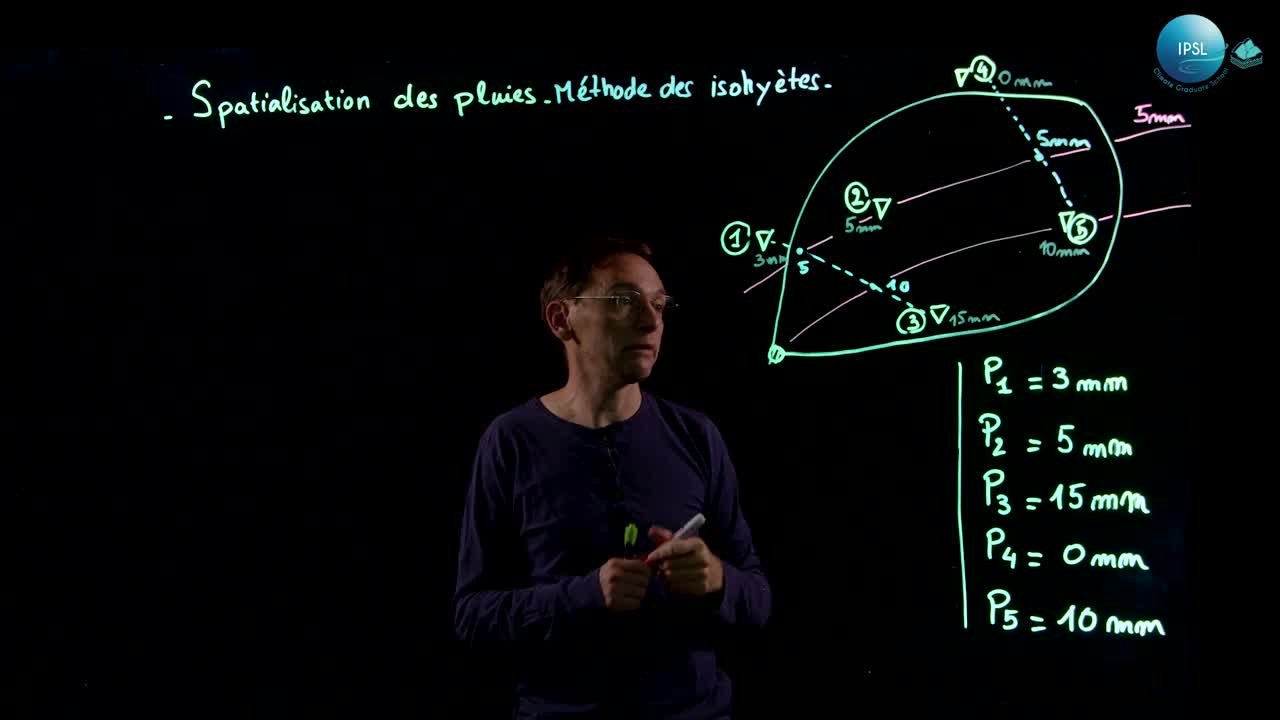 IPSL
Climate Graduate School
- Spatialisation des pluies - Méthode des isohyètes -
4 0mm
5mm
5mm
2
5mm
1
3mm
5
5
10mm
10
3 15mm
P1 = 3 mm
P2 = 5 mm
P3 = 15 mm
P4 = 0 mm
P5 = 10 mm